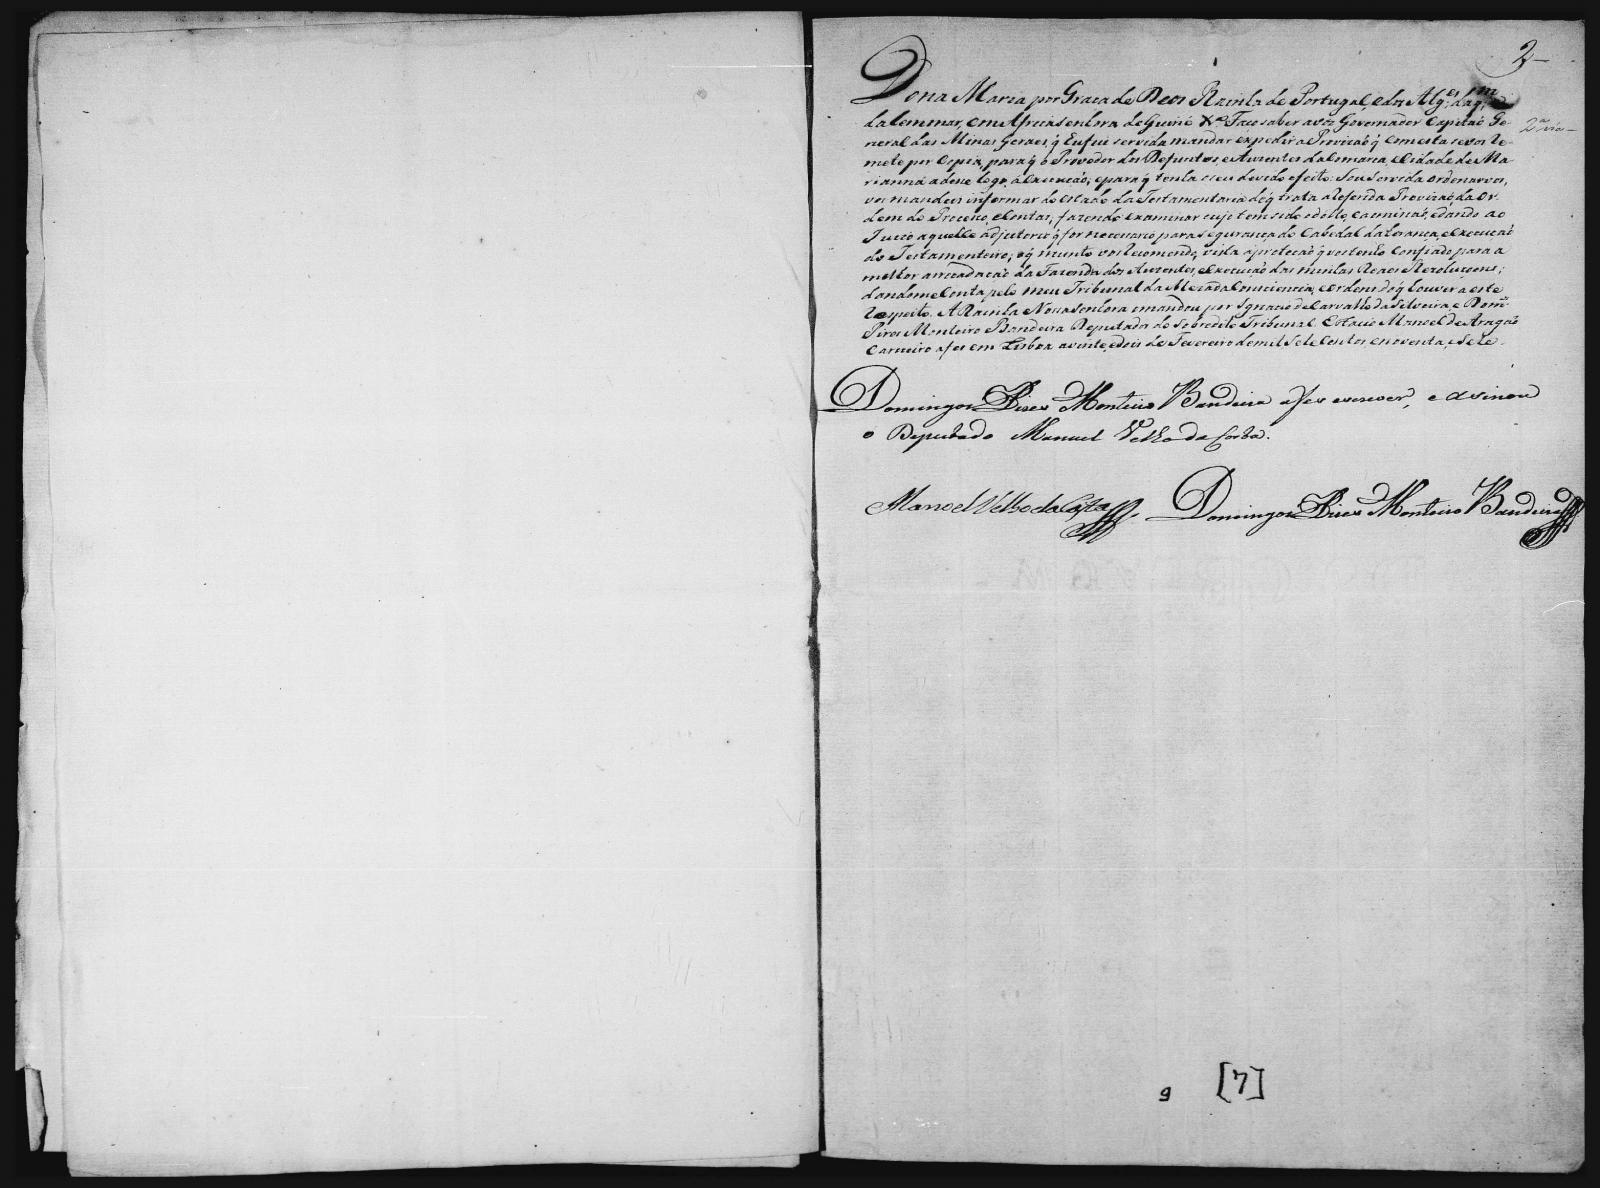 2
Dona Maria por Graca de Deos Rainha de Portugal, e dos Alg.es, daq.m e
dalem mar, em Africa senhora de Guiné &.a Faco saber a vos Governador Capitaõ Ge-
2.a via
neral das Minas Geraes, q̃ Eu fui servida mandar expedir a Provizaõ q̃ com esta se vos re-
mete por Copia, para q̃ o Provedor dos Defuntos, e Auzentes da Comarca, e Cidade de Ma-
rianna a desse logo á execucaõ; e para q̃ tenha o seu devido efeito: Sou servida ordenarvos,
vos mandeis informar do estado da Testamentaria de q̃ trata a referida Provizaõ, da or-
dem do Procesço, e Contas; fazendo examinar cujo tem sido o dollo, e a omissaõ, e dando ao
Juizo aquelle adjutorio q̃ for necessario para seguranca do Cabedal da heranca, e execucaõ
do Testamenteiro; o q̃ muito vos recomendo, vista a protecaõ q̃ vos tenho Confiado para a
melhor arrecadacaõ da Fazenda dos Auzentes, e execucaõ das minhas Reaes Rezolucoens;
dandome Conta pelo meu Tribunal da Meza da Consciencia, e Ordens do q̃ houver a este
respeito. A Rainha Nossa senhora o mandou por Ignacio de Carvalho da Silveira, e Dom.os
Pires Monteiro Bandeira Deputados do sobredito Tribunal. Estacio Manoel de Aragaõ
Carneiro a fez em Lisboa a vinte, e dois de Fevereiro de mil sete Centos, e noventa, e sete.
Domingos Pires Monteiro Bandeira a fez escrever, e asinou
o Deputado Manuel Velho da Costa.
Manoel Velho da Costa Domingos Pires Monteiro Bandeira
9 [7]